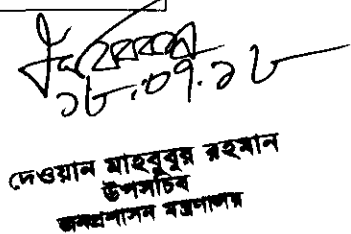 ১৮.০৭.১৮
দেওয়ান মাহবুবুর রহমান
উপসচিব
জনপ্রশাসন মন্ত্রণালয়